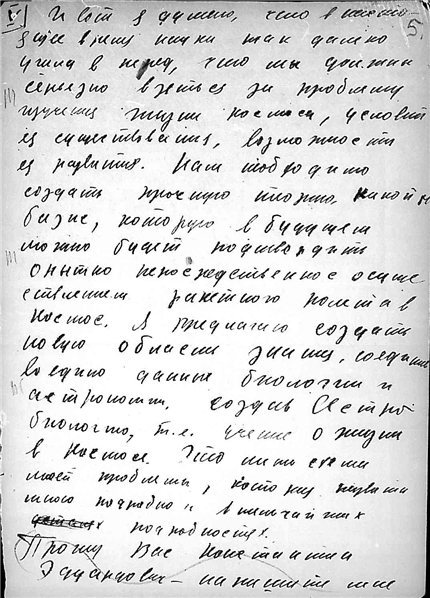 И вот я думаю, что в насто-
5.
ящее время наука так далеко
ушла в перед, что мы должны
серьезно взяться за проблему
изучения жизни космоса, условий
ея существования, возможности
ея развития. Нам необходимо
создать прочную
базис, которую в будущем
можно будет подтвердить
опытно непосредственное осуще
ствлением ракетного полета в
космос. Я предлагаю создать
новую область знания, соединив
воедино данные биологии и
астрономии, создав Астро
биологию, т.е. учение о жизни
в космосе. Это лишь схема
моей проблемы, которая развита
мною подробно и в мельчайших
подробностях.
Прошу Вас Константин
Эдуардович — напишите мне